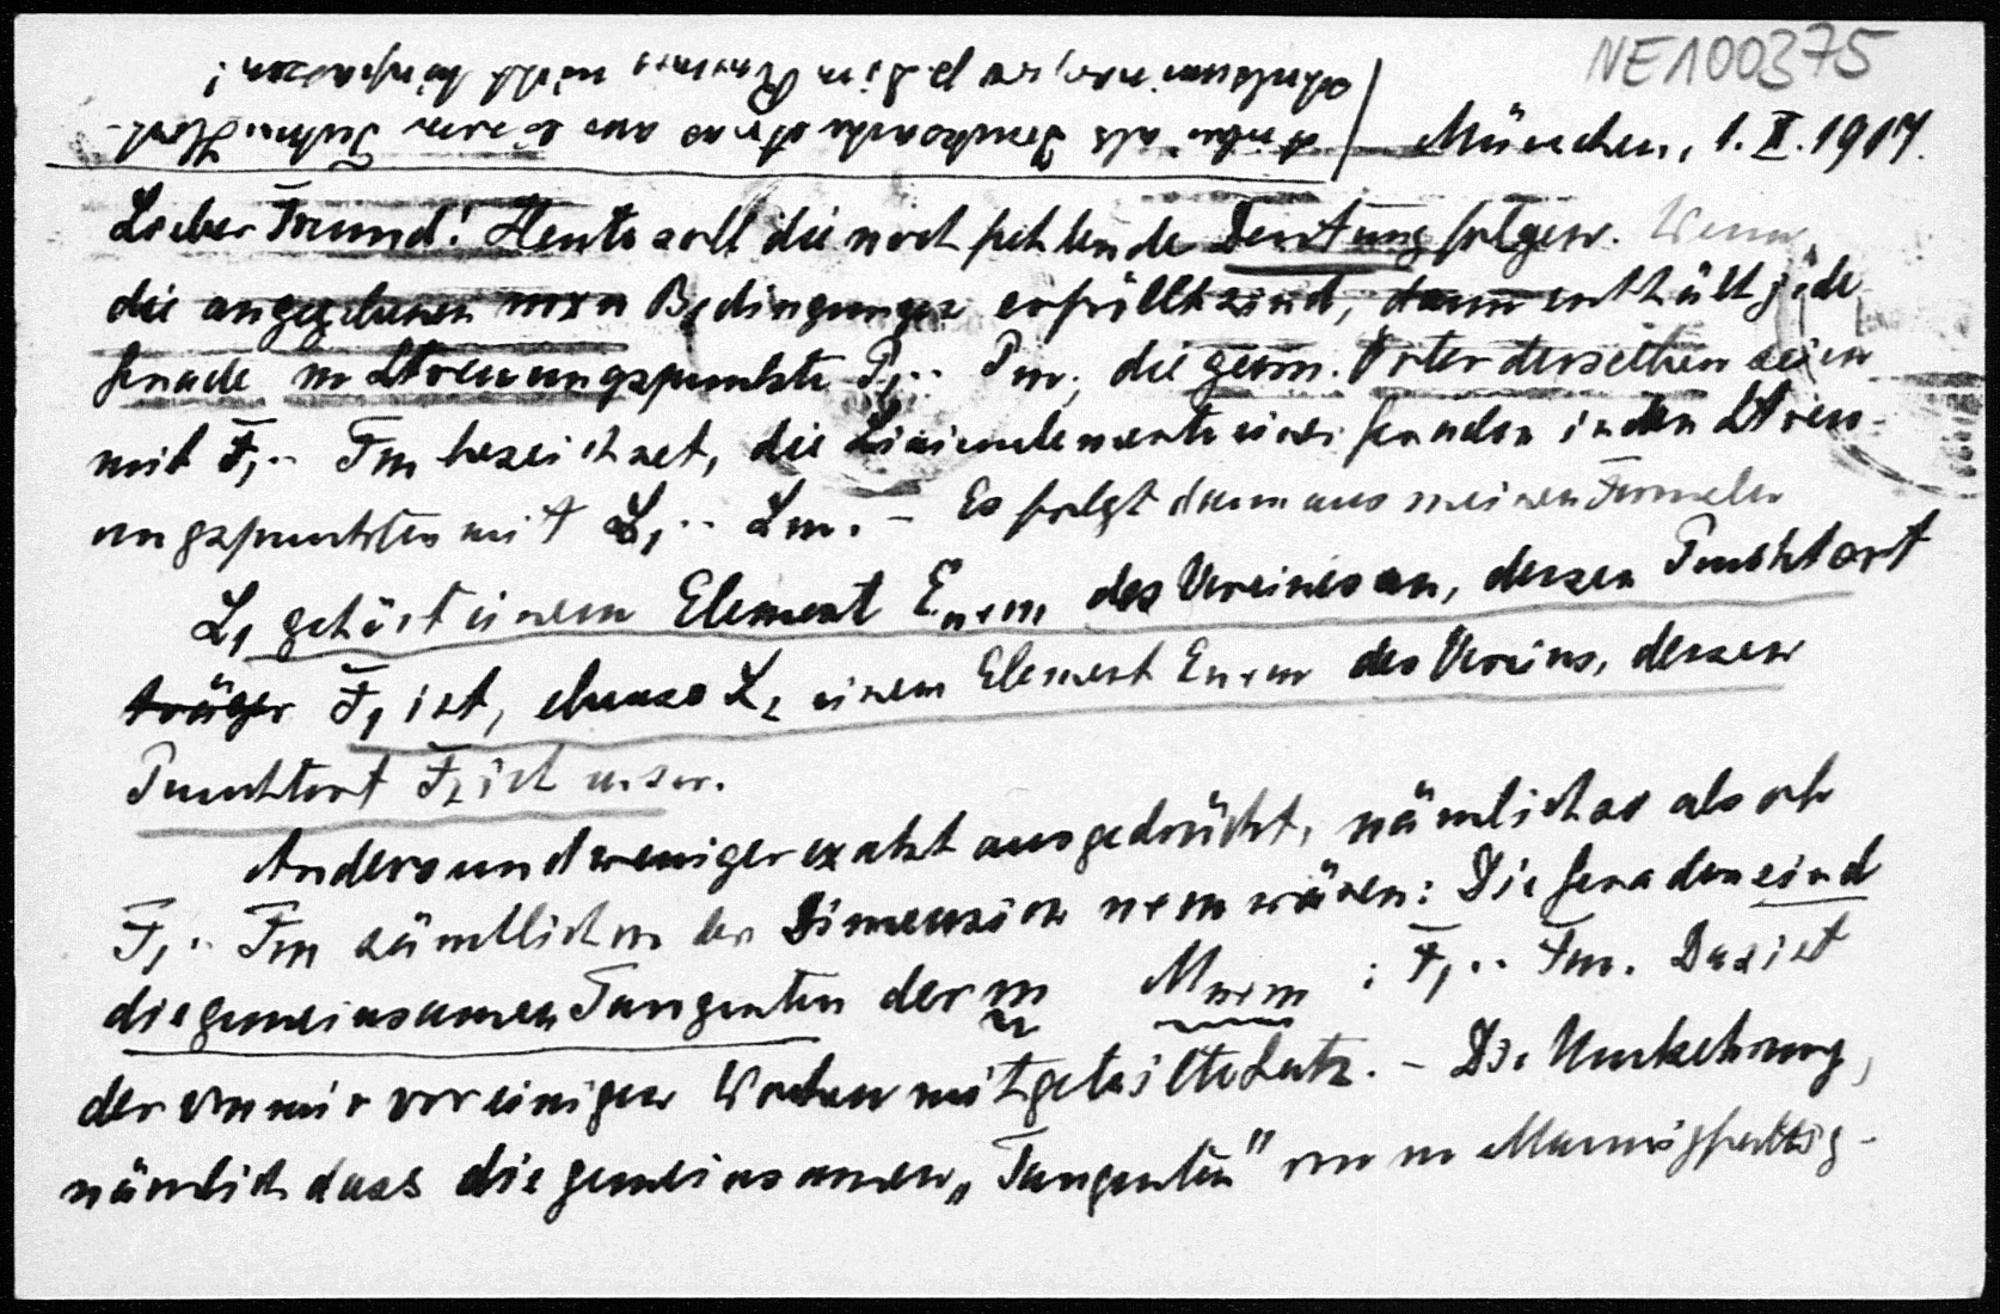 NE100375
München, 1. X. 1917.
Lieber Freund! Heute soll die noch fehlende Deutung folgen. Wenn
die angegebenen mxn Bedingungen erfüllt sind, dann enthält jede
Gerade m Strenungspunkte P1.. Pm, die geom. Örter derselben seien
mit F1.. Fm bezeichnet, die Linienelemente einer Geraden in den Streu-
ungspunkten mit L1.. Lm. - Es folgt dann aus meinen Formeln
L1 gehört einem Element En+m des Vereines an, dessen Punktort
träger F1 ist, ebenso L2 einem Element En+m des Vereins, dessen
Punktort F2 ist u.s.w.
Anders und weniger exakt ausgedrückt, nämlich so als ob
F1.. Fm sämtlich von der Dimension n+m wären: Die Geraden sind
die gemeinsamen Tangenten der m Mn+m : F1.. Fm. Das ist
der von mir vor einigen Wochen mitgeteilte Satz. - Die Umkehrung,
nämlich dass die gemeinsamen „Tangenten" von m Mannigfaltig-